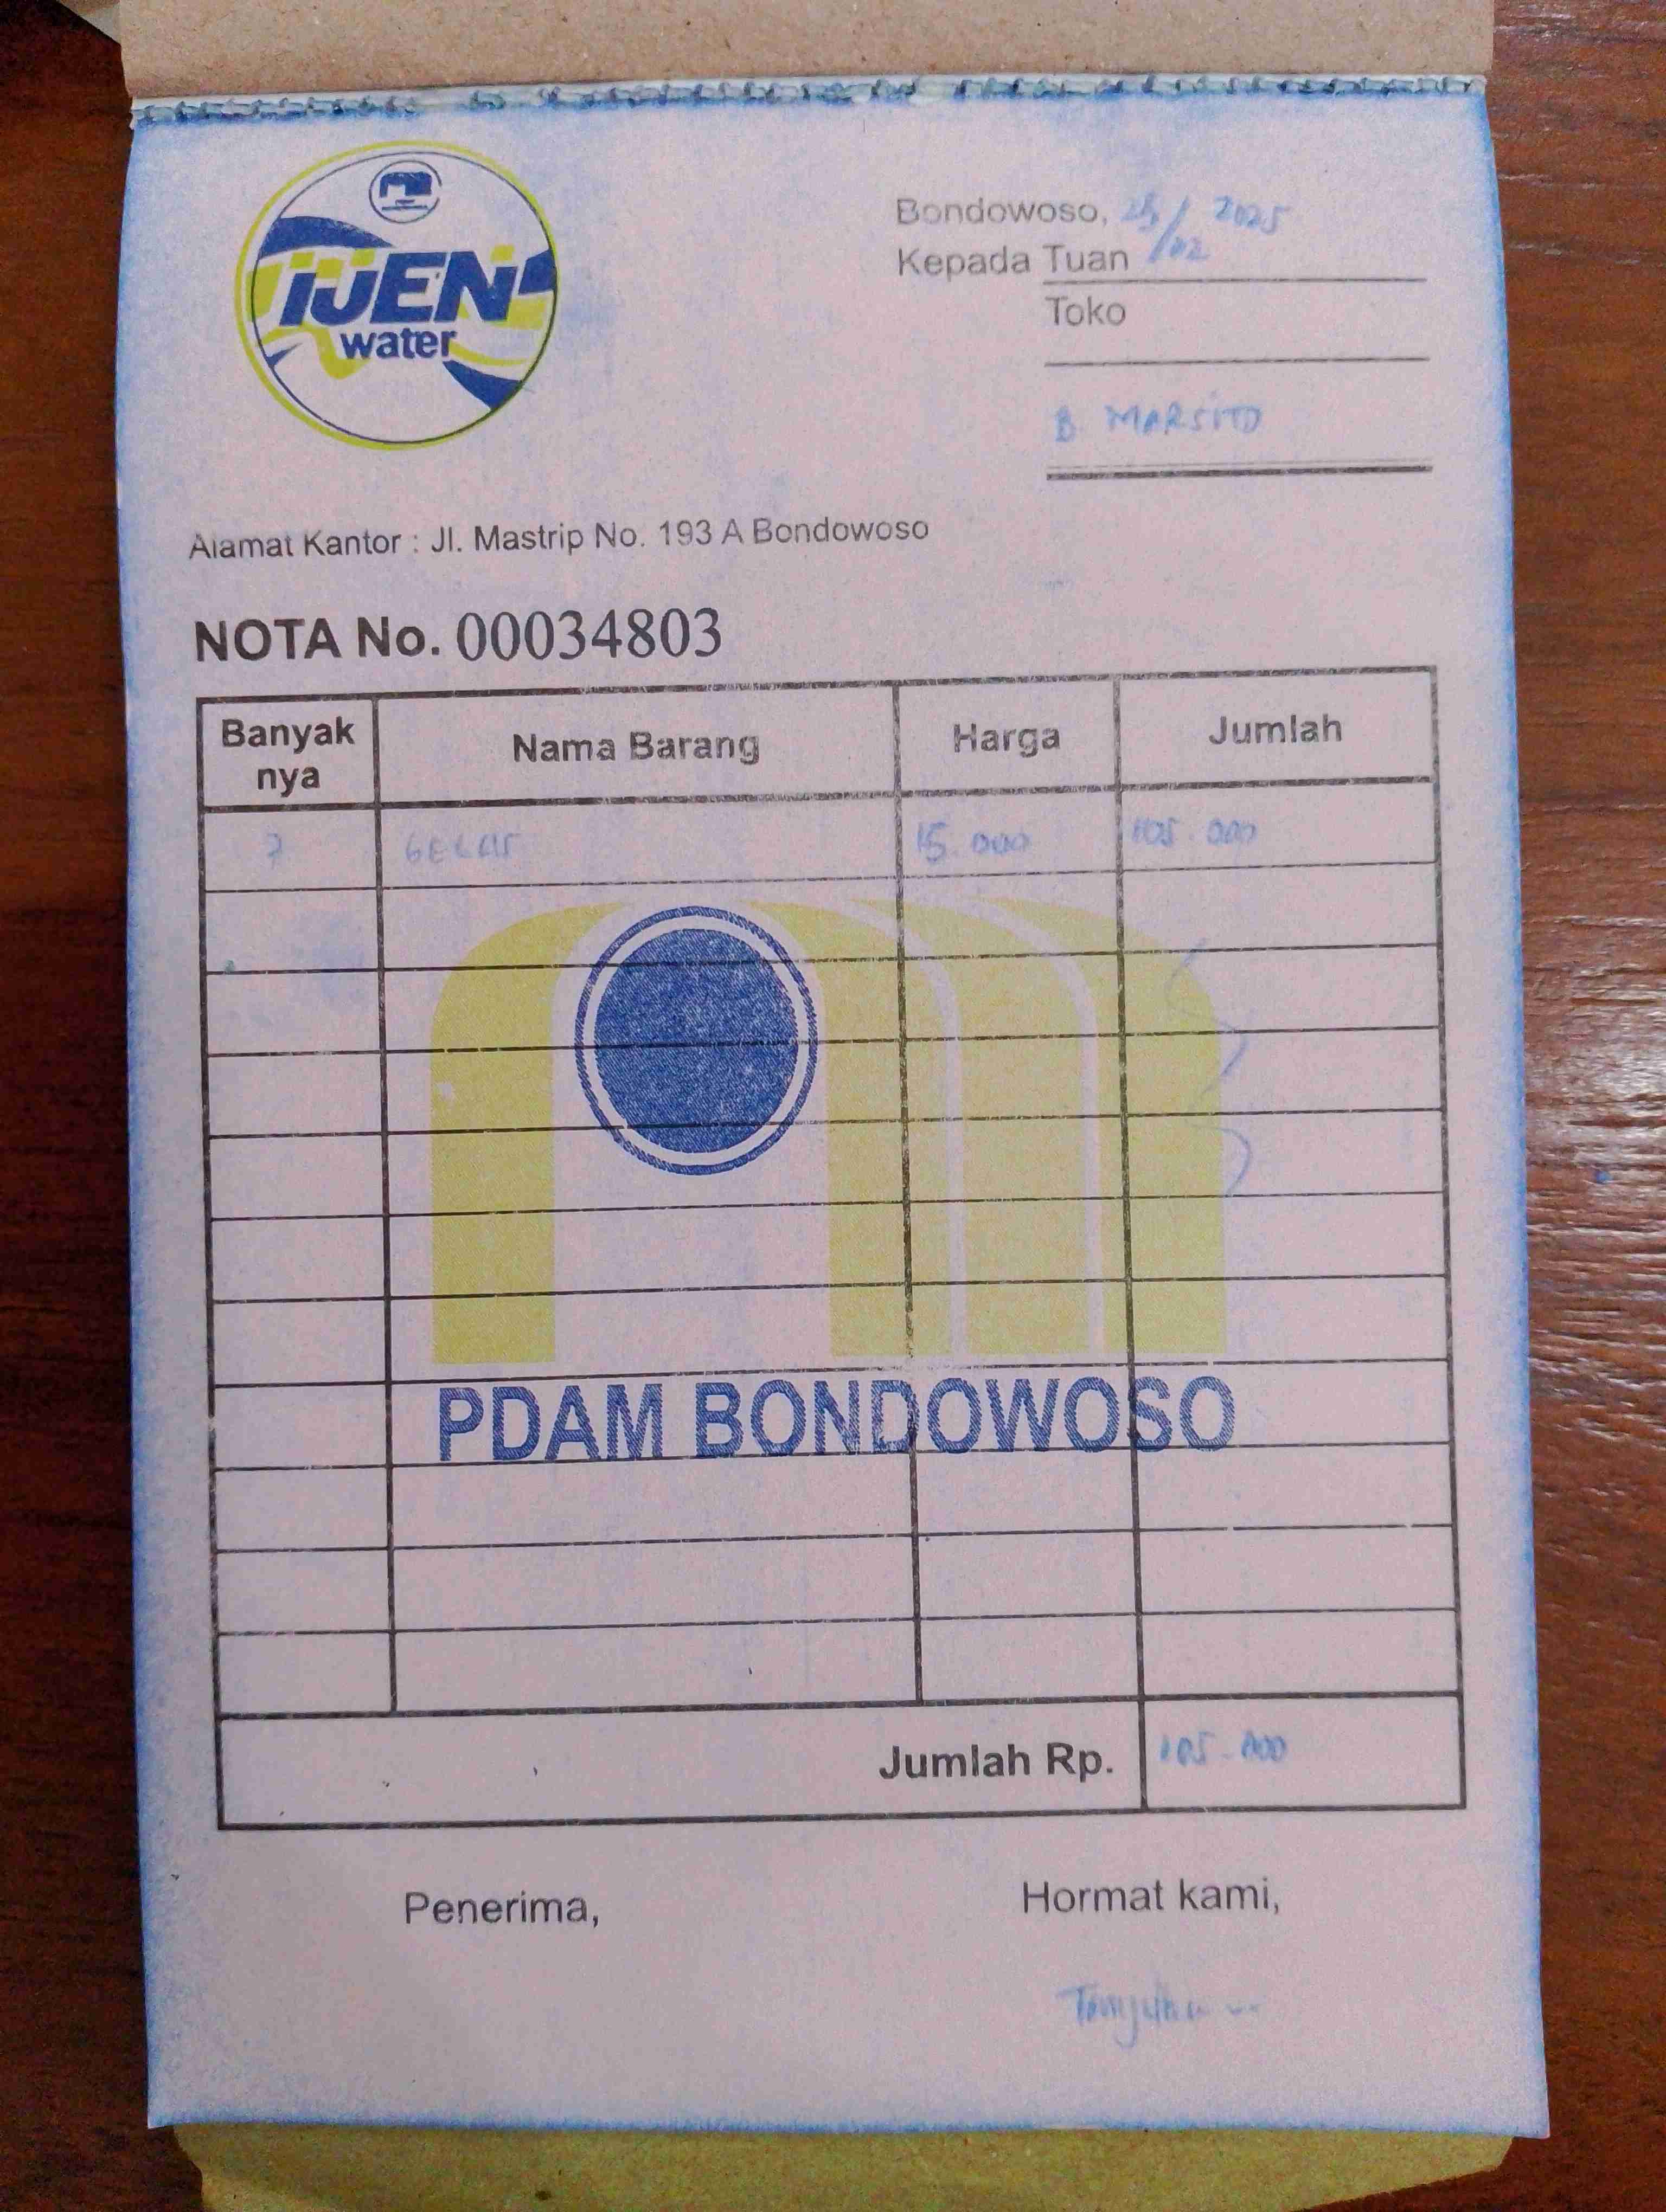 IJEN
water
Bondowoso, 25/02 2025
Kepada Tuan
Toko
B. MARSITO
Alamat Kantor : Jl. Mastrip No. 193 A Bondowoso
NOTA No. 00034803
Banyak nya Nama Barang Harga Jumlah
7 GELAS 15.000 105.000
PDAM BONDOWOSO
Jumlah Rp. 105.000
Penerima, Hormat kami,